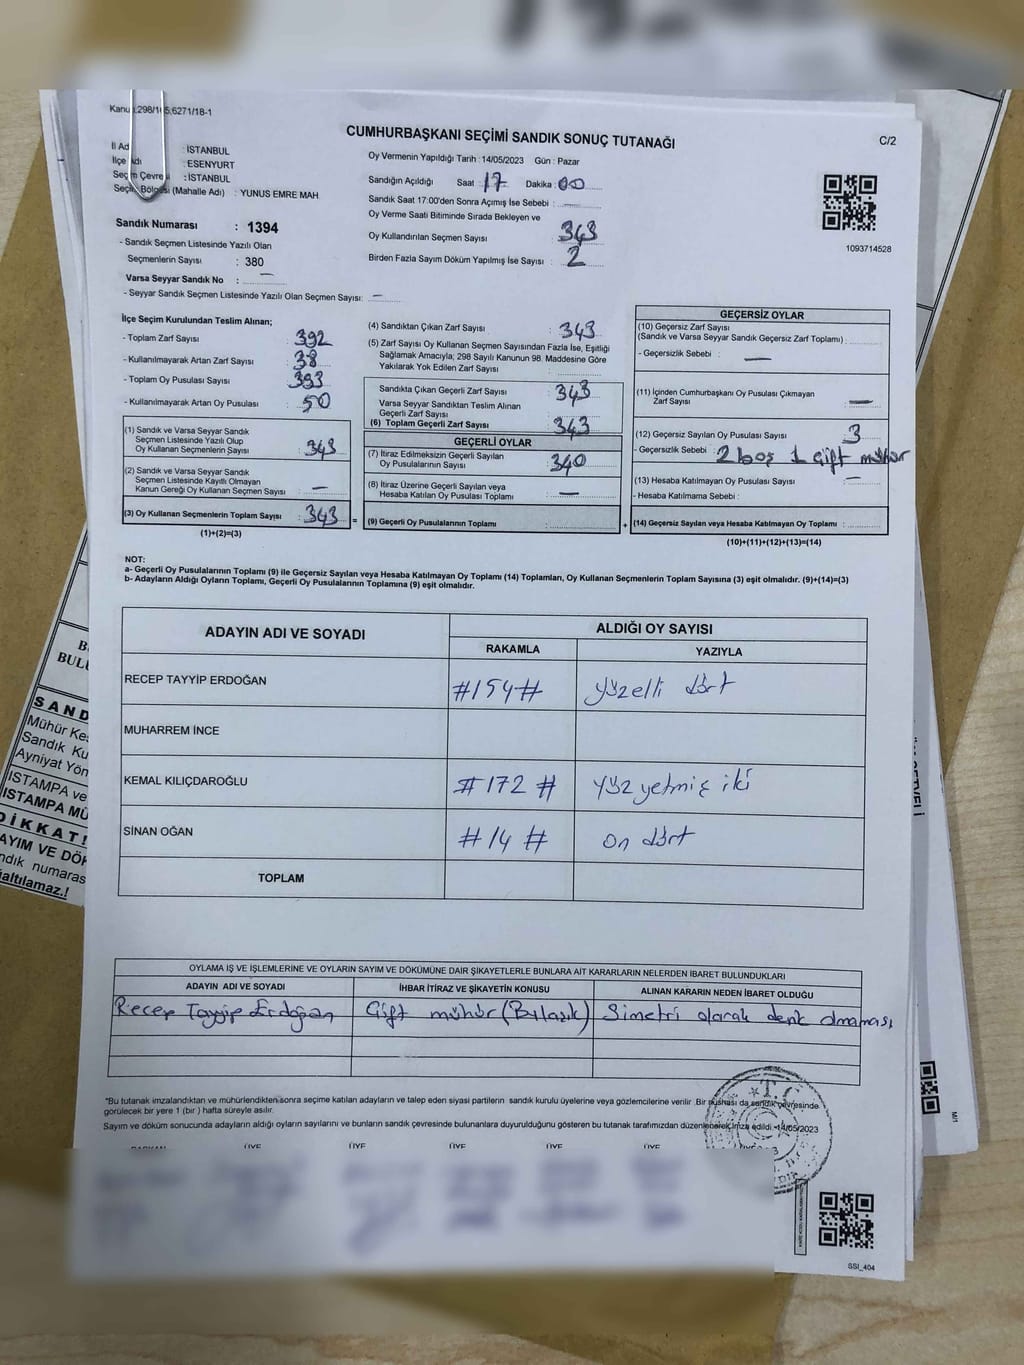 Kanun:298/105;6271/18-1
CUMHURBAŞKANI SEÇİMİ SANDIK SONUÇ TUTANAĞI
C/2
İl Adı : İSTANBUL
İlçe Adı : ESENYURT
Seçim Çevresi : İSTANBUL
Seçim Bölgesi (Mahalle Adı) : YUNUS EMRE MAH
Sandık Numarası : 1394
- Sandık Seçmen Listesinde Yazılı Olan
Seçmenlerin Sayısı : 380
Varsa Seyyar Sandık No : —
- Seyyar Sandık Seçmen Listesinde Yazılı Olan Seçmen Sayısı: —
Oy Vermenin Yapıldığı Tarih : 14/05/2023 Gün : Pazar
Sandığın Açıldığı Saat : 17 Dakika : 00
Sandık Saat 17:00'den Sonra Açımış İse Sebebi : —
Oy Verme Saati Bitiminde Sırada Bekleyen ve
Oy Kullandırılan Seçmen Sayısı : 343
Birden Fazla Sayım Döküm Yapılmış İse Sayısı : 2
1093714528
İlçe Seçim Kurulundan Teslim Alınan;
- Toplam Zarf Sayısı : 392
- Kullanılmayarak Artan Zarf Sayısı : 38
- Toplam Oy Pusulası Sayısı : 393
- Kullanılmayarak Artan Oy Pusulası : 50
(1) Sandık ve Varsa Seyyar Sandık
Seçmen Listesinde Yazılı Olup
Oy Kullanan Seçmenlerin Sayısı : 343
(2) Sandık ve Varsa Seyyar Sandık
Seçmen Listesinde Kayıtlı Olmayan
Kanun Gereği Oy Kullanan Seçmen Sayısı : —
(3) Oy Kullanan Seçmenlerin Toplam Sayısı : 343
(1)+(2)=(3)
=
(4) Sandıktan Çıkan Zarf Sayısı : 343
(5) Zarf Sayısı Oy Kullanan Seçmen Sayısından Fazla İse, Eşitliği
Sağlamak Amacıyla; 298 Sayılı Kanunun 98. Maddesine Göre
Yakılarak Yok Edilen Zarf Sayısı :
Sandıkta Çıkan Geçerli Zarf Sayısı : 343
Varsa Seyyar Sandıktan Teslim Alınan
Geçerli Zarf Sayısı :
(6) Toplam Geçerli Zarf Sayısı : 343
GEÇERLİ OYLAR
(7) İtiraz Edilmeksizin Geçerli Sayılan
Oy Pusulalarının Sayısı : 340
(8) İtiraz Üzerine Geçerli Sayılan veya
Hesaba Katılan Oy Pusulası Toplamı : —
(9) Geçerli Oy Pusulalarının Toplamı :
+
GEÇERSİZ OYLAR
(10) Geçersiz Zarf Sayısı
(Sandık ve Varsa Seyyar Sandık Geçersiz Zarf Toplamı) :
- Geçersizlik Sebebi : —
(11) İçinden Cumhurbaşkanı Oy Pusulası Çıkmayan
Zarf Sayısı : —
(12) Geçersiz Sayılan Oy Pusulası Sayısı : 3
- Geçersizlik Sebebi : 2 boş 1 Çift mühür
(13) Hesaba Katılmayan Oy Pusulası Sayısı : —
- Hesaba Katılmama Sebebi :
(14) Geçersiz Sayılan veya Hesaba Katılmayan Oy Toplamı :
(10)+(11)+(12)+(13)=(14)
NOT:
a- Geçerli Oy Pusulalarının Toplamı (9) ile Geçersiz Sayılan veya Hesaba Katılmayan Oy Toplamı (14) Toplamları, Oy Kullanan Seçmenlerin Toplam Sayısına (3) eşit olmalıdır. (9)+(14)=(3)
b- Adayların Aldığı Oyların Toplamı, Geçerli Oy Pusulalarının Toplamına (9) eşit olmalıdır.
ADAYIN ADI VE SOYADI
ALDIĞI OY SAYISI
RAKAMLA YAZIYLA
RECEP TAYYİP ERDOĞAN #154# yüzelli dört
MUHARREM İNCE
KEMAL KILIÇDAROĞLU #172# yüz yetmiş iki
SİNAN OĞAN #14# on dört
TOPLAM
OYLAMA İŞ VE İŞLEMLERİNE VE OYLARIN SAYIM VE DÖKÜMÜNE DAİR ŞİKAYETLERLE BUNLARA AİT KARARLARIN NELERDEN İBARET BULUNDUKLARI
ADAYIN ADI VE SOYADI İHBAR İTİRAZ VE ŞİKAYETİN KONUSU ALINAN KARARIN NEDEN İBARET OLDUĞU
Recep Tayyip Erdoğan Çift mühür (Bulaşık) Simetri olarak denk olmaması
"Bu tutanak imzalandıktan ve mühürlendikten sonra seçime katılan adayların ve talep eden siyasi partilerin sandık kurulu üyelerine veya gözlemcilerine verilir. Bir nüshası da sandık çevresinde
görülecek bir yere 1 (bir) hafta süreyle asılır.
Sayım ve döküm sonucunda adayların aldığı oyların sayılarını ve bunların sandık çevresinde bulunanlara duyurulduğunu gösteren bu tutanak tarafımızdan düzenlenerek imza edildi. 14/05/2023
BAŞKAN ÜYE ÜYE ÜYE ÜYE ÜYE
T.C.
SSI_404
SAND
Mühür Kes
Sandık Ku
Ayniyat Yön
ISTAMPA ve
ISTAMPA MÜ
DİKKAT!
AYIM VE DÖK
ndık numaras
altılamaz.!